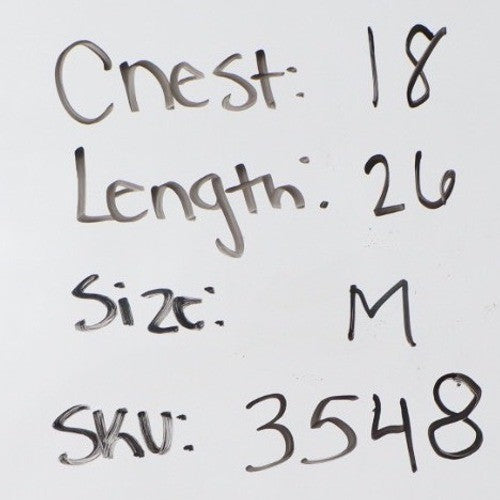 Chest: 18
Length: 26
Size: M
SKU: 3548